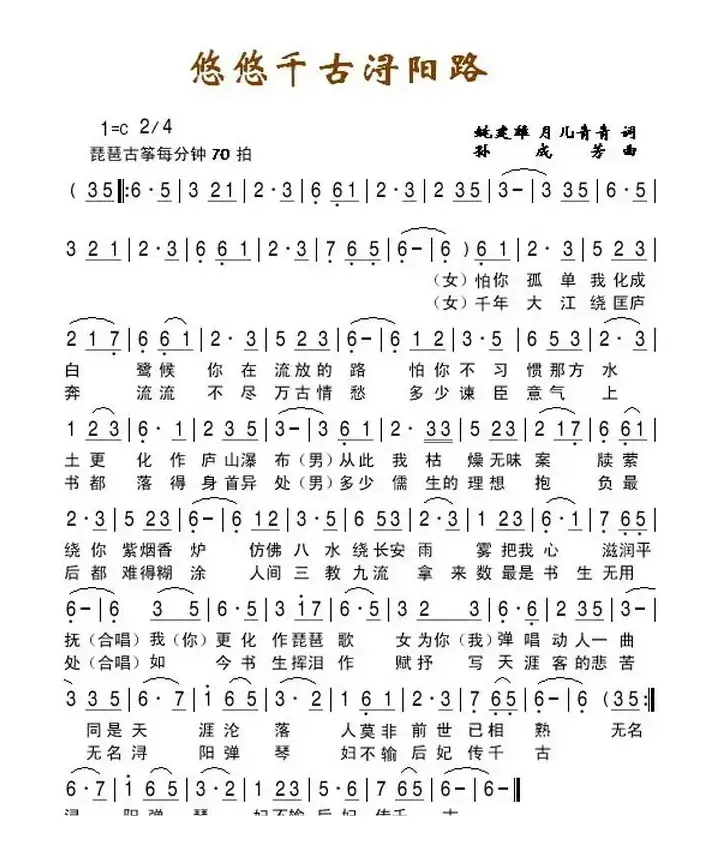 悠悠千古浔阳路
1=C 2/4
姚建雄 月儿青青 词
琵琶古筝每分钟 70 拍
孙 成 芳 曲
( 3 5 ‖: 6 · 5 | 3 2 1 | 2 · 3 | 6 6 1 | 2 · 3 | 2 3 5 | 3 – | 3 3 5 | 6 · 5 |
3 2 1 | 2 · 3 | 6 6 1 | 2 · 3 | 7 6 5 | 6 – | 6 ) 6 1 | 2 · 3 | 5 2 3 |
(女) 怕你 孤 单 我 化成
(女) 千年 大 江 绕 匡庐
2 1 7 | 6 6 1 | 2 · 3 | 5 2 3 | 6 – | 6 1 2 | 3 · 5 | 6 5 3 | 2 · 3 |
白 鹭候 你 在 流放的 路 怕你 不 习 惯那方 水
奔 流流 不 尽 万古情 愁 多少 谏 臣 意气 上
1 2 3 | 6 · 1 | 2 3 5 | 3 – | 3 6 1 | 2 · 3 3 | 5 2 3 | 2 1 7 | 6 6 1 |
土 更 化 作 庐山瀑 布 (男) 从此 我 枯 燥无味 案 牍 萦
书 都 落 得 身首异 处 (男) 多少 儒 生的 理想 抱 负 最
2 · 3 | 5 2 3 | 6 – | 6 1 2 | 3 · 5 | 6 5 3 | 2 · 3 | 1 2 3 | 6 · 1 | 7 6 5 |
绕 你 紫烟香 炉 仿佛 八 水 绕长安 雨 雾 把我 心 滋润平
后 都 难得糊 涂 人间 三 教 九流 拿 来 数 最是 书 生 无用
6 – | 6 3 5 | 6 · 5 | 3 1 7 | 6 · 5 | 3 2 3 | 6 · 6 | 2 3 5 | 3 – |
抚 (合唱) 我 (你) 更 化 作 琵琶 歌 女 为你 (我) 弹 唱 动人一 曲
处 (合唱) 如 今 书 生挥泪 作 赋 抒 写 天 涯 客 的悲 苦
3 3 5 | 6 · 7 | 1 6 5 | 3 · 2 | 1 6 1 | 2 · 3 | 7 6 5 | 6 – | 6 ( 3 5 :‖
同是 天 涯 沦 落 人 莫非 前 世 已 相 熟 无名
无名 浔 阳 弹 琴 妇 不输 后 妃 传 千 古
6 · 7 | 1 6 5 | 3 · 2 | 1 2 3 | 5 · 6 | 7 6 5 | 6 – | 6 – ‖
浔 阳 弹 琴 妇 不输 后 妃 传 千 古